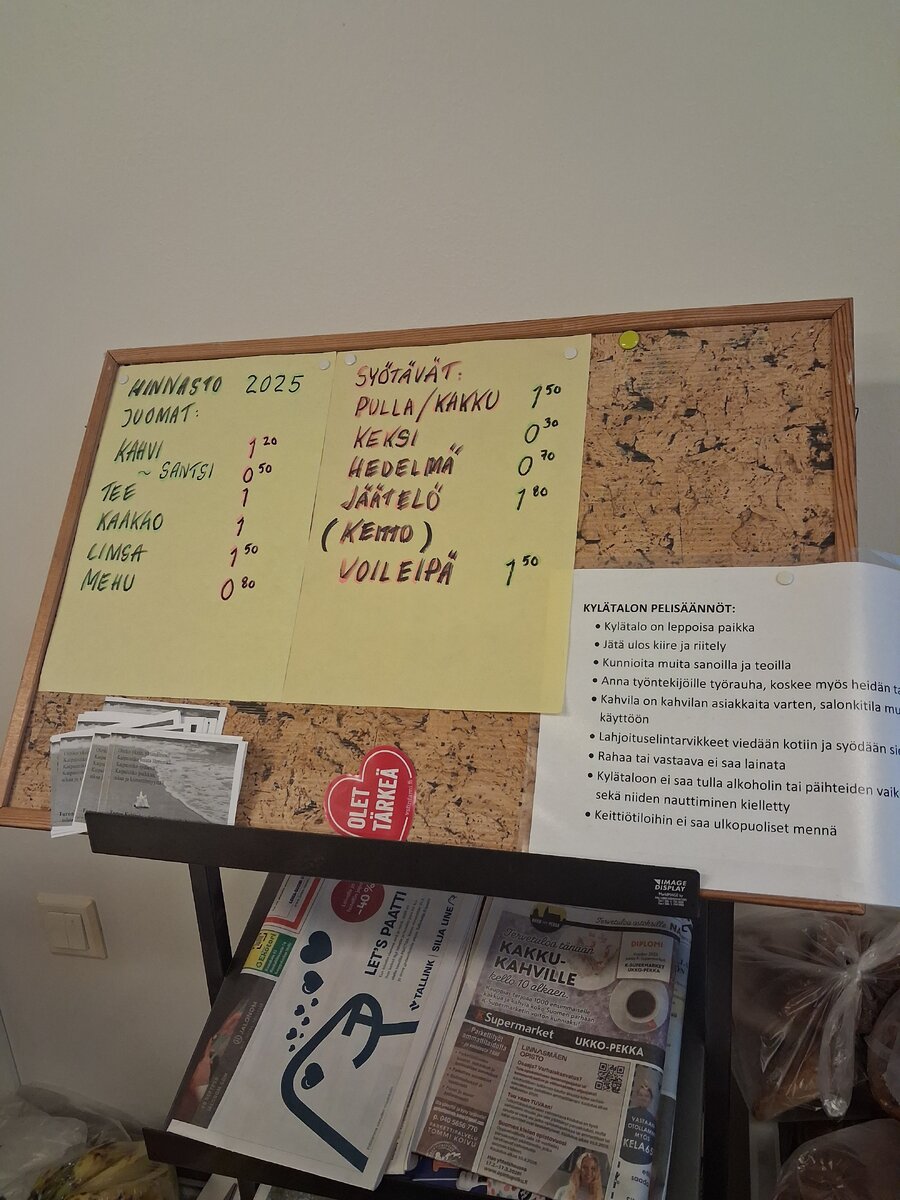 HINNASTO 2025
JUOMAT:
KAHVI 1 20
~ SANTSI 0 50
TEE 1
KAAKAO 1
LIMSA 1 50
MEHU 0 80
SYÖTÄVÄT:
PULLA/KAKKU 1 50
KEKSI 0 30
HEDELMÄ 0 70
JÄÄTELÖ 1 80
(KEITTO)
VOILEIPÄ 1 50
KYLÄTALON PELISÄÄNNÖT:
• Kylätalo on leppoisa paikka
• Jätä ulos kiire ja riitely
• Kunnioita muita sanoilla ja teoilla
• Anna työntekijöille työrauha, koskee myös heidän
• Kahvila on kahvilan asiakkaita varten, salonkitila
käyttöön
• Lahjoituselintarvikkeet viedään kotiin ja syödään
• Rahaa tai vastaava ei saa lainata
• Kylätaloon ei saa tulla alkoholin tai päihteiden
sekä niiden nauttiminen kielletty
• Keittiötiloihin ei saa ulkopuoliset mennä
OLET
TÄRKEÄ
IMAGE
DISPLAY
-40%
LET'S PAATTI
TALLINK | SILJA LINE
Tervetuloa tänään
KAKKU-
KAHVILLE
kello 10 alkaen.
DIPLOMI
K-SUPERMARKET
UKKO-PEKKA
Supermarket UKKO-PEKKA
LINNASMÄEN
OPISTO
p. 040 5656 770
TOMMI KOIVU